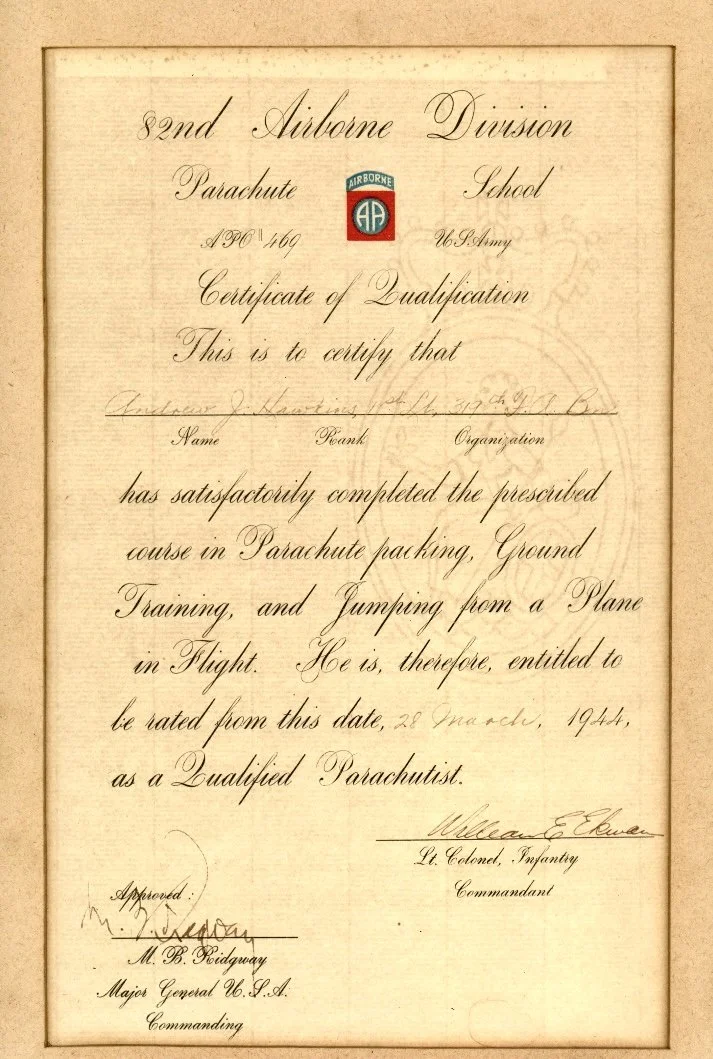 82nd Airborne Division
Parachute School
AIRBORNE
AA
APO 469 U.S.Army
Certificate of Qualification
This is to certify that
Andrew J. Hawkins, 1st Lt, 319th
Name Rank Organization
has satisfactorily completed the prescribed
course in Parachute packing, Ground
Training, and Jumping from a Plane
in Flight. He is, therefore, entitled to
be rated from this date, 28 March, 1944,
as a Qualified Parachutist.
William E Ekman
Lt. Colonel, Infantry
Commandant
Approved :
M. B. Ridgway
M. B. Ridgway
Major General U.S.A.
Commanding